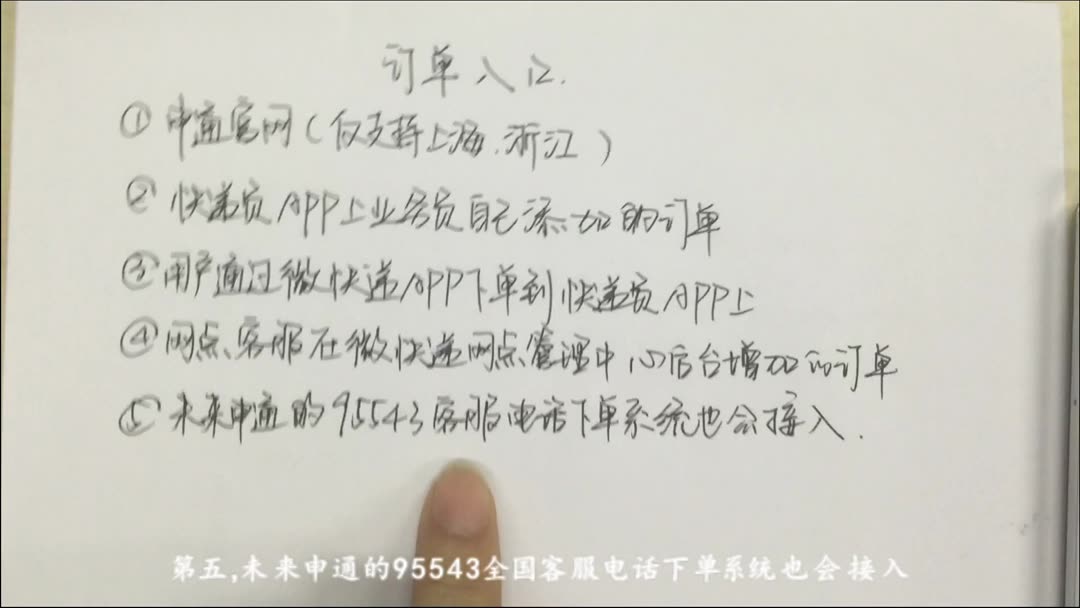 订单入口.
①申通官网(仅支持上海.浙江)
②快递员APP上业务员自己添加的订单
③用户通过微快递APP下单到快递员APP上
④网点客服在微快递网点管理中心后台增加的订单
⑤未来申通的95543客服电话下单系统也会接入.
第五,未来申通的95543全国客服电话下单系统也会接入